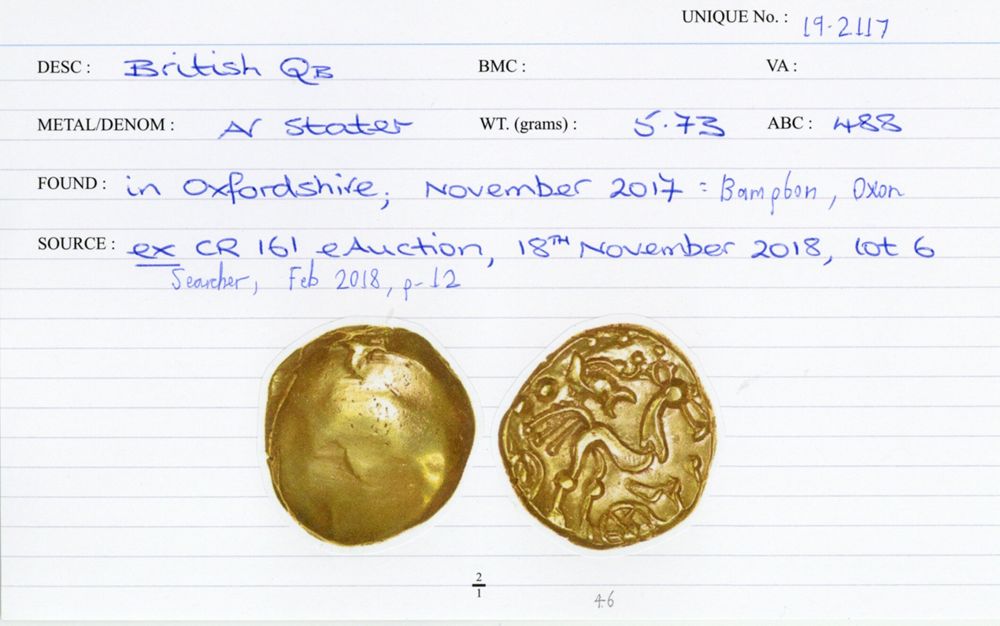 UNIQUE No. : 19-2117
DESC : British QB BMC : VA :
METAL/DENOM : AV Stater WT. (grams) : 5.73 ABC : 488
FOUND : in Oxfordshire, November 2017 : Bampton, Oxon
SOURCE : ex CR 161 eAuction, 18TH November 2018, lot 6
Searcher, Feb 2018, p-12
2
1
46